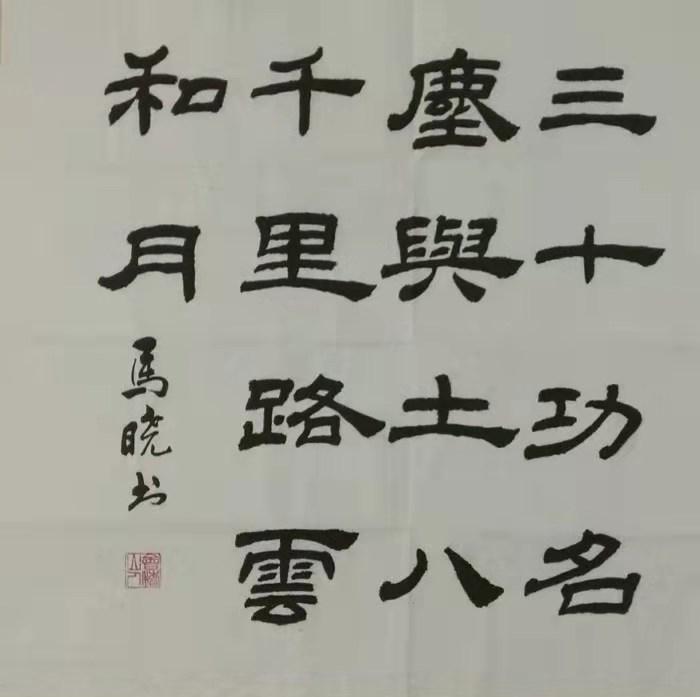 三十功名
塵與土八
千里路雲
和月
馬晓书